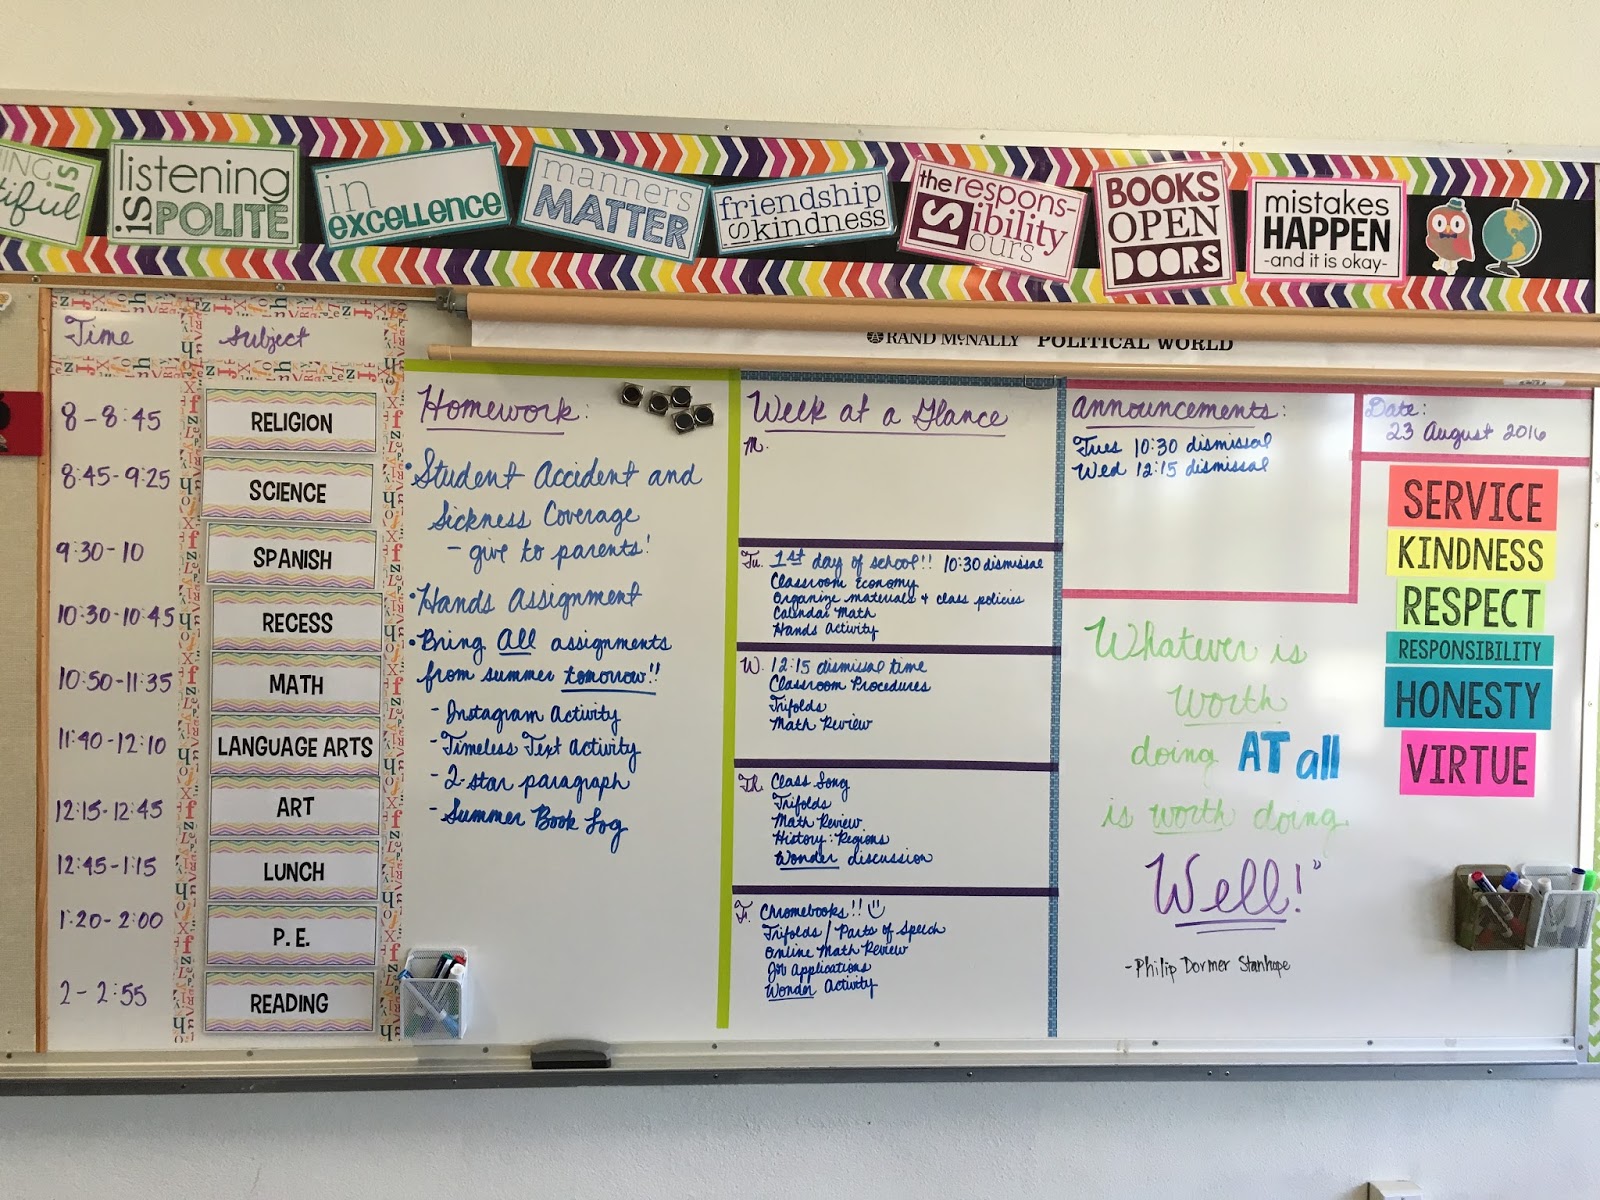 listening
is POLITE
in
excellence
manners
MATTER
friendship
is kindness
the respons-
IS ibility
ours
BOOKS
OPEN
DOORS
mistakes
HAPPEN
-and it is okay-
RAND McNALLY POLITICAL WORLD
Time Subject
8 - 8:45 RELIGION
8:45 - 9:25 SCIENCE
9:30 - 10 SPANISH
10:30 - 10:45 RECESS
10:50 - 11:35 MATH
11:40 - 12:10 LANGUAGE ARTS
12:15 - 12:45 ART
12:45 - 1:15 LUNCH
1:20 - 2:00 P.E.
2 - 2:55 READING
Homework:
• Student Accident and
Sickness Coverage
- give to parents!
• Hands Assignment
• Bring All assignments
from summer tomorrow!!
- Instagram Activity
- Timeless Text Activity
- 2-star paragraph
- Summer Book Log
Week at a Glance
M.
Tu. 1st day of school!! 10:30 dismissal
Classroom Economy
Organize materials + class policies
Calendar Math
Hands Activity
W. 12:15 dismissal time
Classroom Procedures
Trifolds
Math Review
Th. Class Song
Trifolds
Math Review
History: Regions
Wonder discussion
F. Chromebooks!!
Trifolds / Parts of Speech
Online Math Review
Job Applications
Wonder Activity
Announcements:
Tues 10:30 dismissal
Wed 12:15 dismissal
Date:
23 August 2016
Whatever is
worth
doing AT all
is worth doing
Well!"
- Philip Dormer Stanhope
SERVICE
KINDNESS
RESPECT
RESPONSIBILITY
HONESTY
VIRTUE